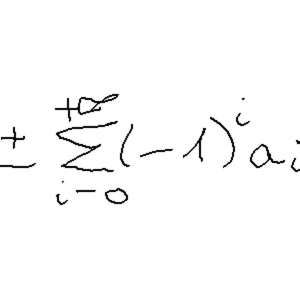 ± \sum_{i-0}^{+\infty} (-1)^i a_i